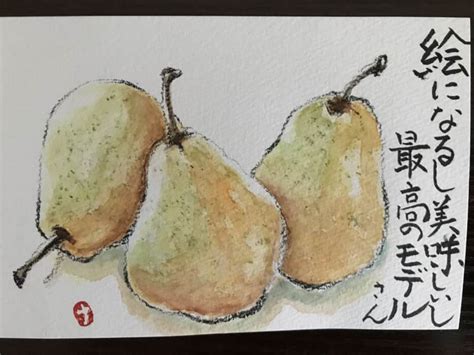 絵になるし美味しいし
最高のモデル
さん